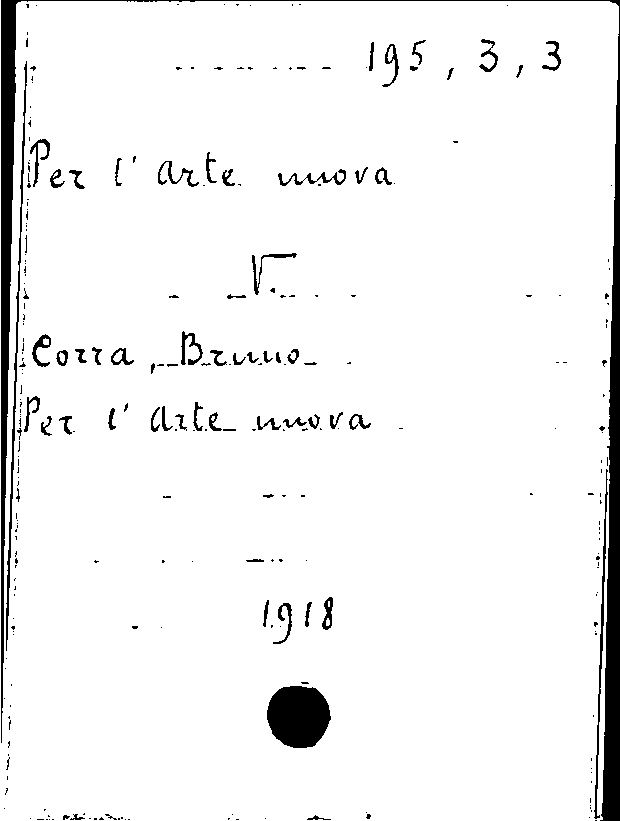 195, 3, 3
Per l' arte nuova
V.
Corra, Bruno
Per l' arte nuova
1918